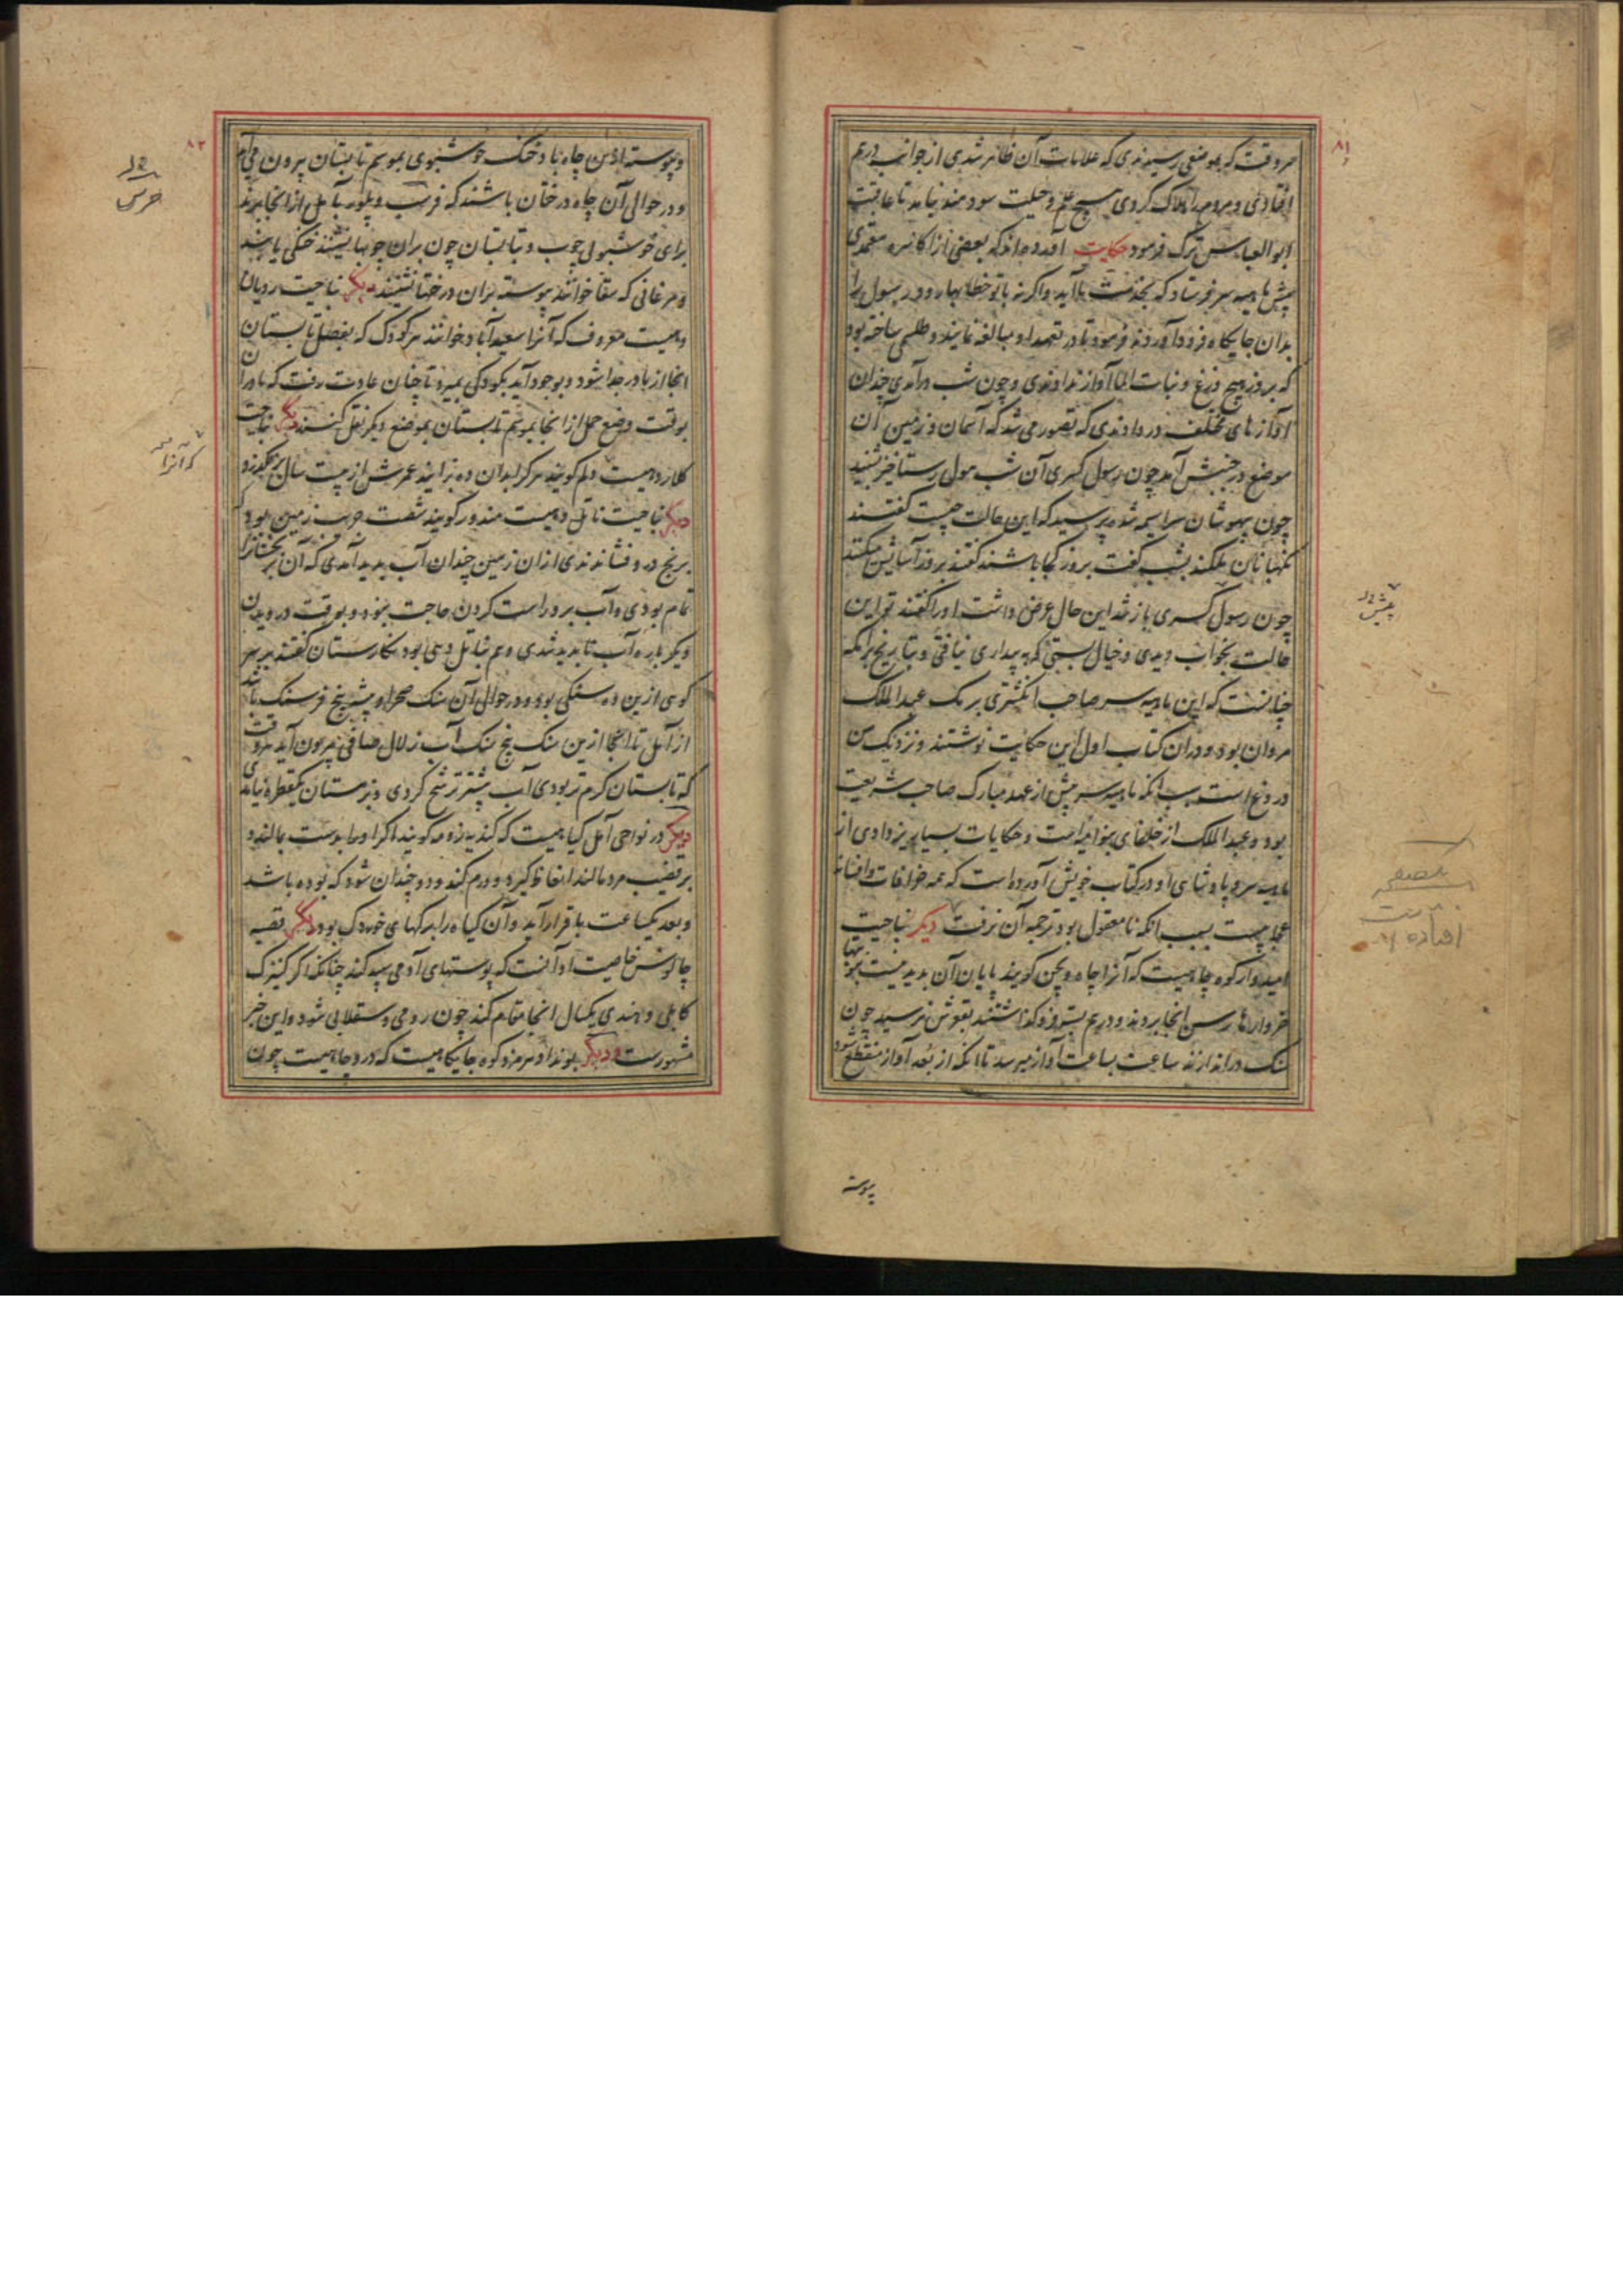 ۸۱
هروقت که بموضعی رسیدندی که علامات آن ظاهر شدی از جوانب درهم
افتادی و مردم را هلاک کردی هیچ علم و حیلت سودمند نیامد تا عاقبت
ابوالعباس ترک فرمود حکایت آورده‌اند که بعضی از اکاسره معتمدی
پیش ماهیه سر فرستاد که بخدمت ما آید واگرنه باتو خطابها رود رسول را
بدان جایکاه فرود آوردند فرمود تا در تعهد او مبالغه نمایند و طلسمی ساخته بود
که بروز هیچ وزغ و نبات الما آواز ندادندی و چون شب درآمدی چندان
آوازهای مختلف در دادندی که تصور می شد که آسمان و زمین آن
موضع در جنبش آمد چون رسول کسری آن شب هول رستاخیز بشنید
چون بیهوشان سراسیمه شده پرسید که این حالت چیست گفتند
نگهبانان ملکند بشب گفت بروز کجا باشند گفتند بروز آسایش کنند
چون رسول کسری باز شد این حال عرض داشت او را گفتند تو این
حالت بخواب دیدی و خیال بستی که به بیداری نیافتی و بتاریخ برامکه
چنانست که این ماهیه سر صاحب انکشتری برمک عبدالملک
مروان بود و دران کتاب اول این حکایت نوشتند و نزدیک من
دروغ است سبب انکه ماهیه سر پیش از عهد مبارک صاحب شریعت
بود و عبدالملک از خلفای بنو امیه است و حکایات بسیار یزدادی از
ماهیه سر و پادشاهی او در کتاب خویش آورده است که همه خرافات و افسانه
عجایبست بسبب انکه نامعقول بود ترجمه آن نرفت دیکر بناحیت
امیدوارکوه چاهیست که آنرا چاه ویجن کویند پایان آن بدید نیست بنوبتها
خروارها رسن انجا بردند و درهم بسته فروکذاشتند بقعرش نرسید چون
سنک دراندازند ساعت بساعت آواز میرسد تا انکه از بعد آواز منقطع شود
پیوسته
۸۲
و پیوسته ازین چاه باد خنک خوشبوی بموسم تابستان بیرون می‌آید
و در حوالی آن چاه درختان باشند که فریب و بلور بآمل از انجا برند
برای خوشبوئی چوب و تابستان چون بران چوبها نشینند خنکی یابند
و مرغانی که سقا خوانند پیوسته بران درختها نشینند دیکر بناحیت رویان
دهیست معروف که آنرا سعیدآباد خوانند هر کودک که بفصل تابستان
انجا از مادر جدا شود و بوجود آید بکودکی بمیرد تا چنان عادت رفت که مادران
بوقت وضع حمل از انجا بموسم تابستان بموضع دیکر نقل کنند دیکر بناحیت
کلار دهیست دلم کویند هرکرا بدان ده بزایند عمرش از بیست سال برنکذرد
دیکر بناحیت ناتل دهیست مندور کویند شصت جریب زمین بود
برنج درو فشاندندی ازان زمین چندان آب بدید آمدی که آن برنجستانرا
تمام بودی و آب برو راست کردن حاجت نبود و بوقت درویدن
دیکر باره آب ناپدید شدی و هم بناتل دهی بود نکارستان گفتند بر سر
کوهی ازین ده سنکی بود و در حوالی آن سنک صحرا و بیشه پنج فرسنک باشد
از آمل تا انجا ازین سنک پنج سنک آب زلال صافی بیرون آید هروقت
که تابستان کرم تر بودی آب بیشتر ترشح کردی و بزمستان یکقطره نیامدی
دیکر در نواحی آمل کیاهیست که کندیه زومه کویند اکر او را بدست بمالند و
بر قضیب مرد مالند انعاظ کیرد و ورم کند و دو چندان شود که بوده باشد
و بعد یکساعت باقرار آید و آن کیاه را برکهای خوردک بود دیکر قصبه
چالوس خاصیت او آنست که پوستهای آدمی سپید کند چنانکه اکر کنیزک
کابلی و هندی یکسال انجا مقام کند چون رومی و سقلابی شود و این خبر
مشهورست و دیکر بونداد هرمزدکوه جایکاهیست که درو چاهیست چون
که آنرا